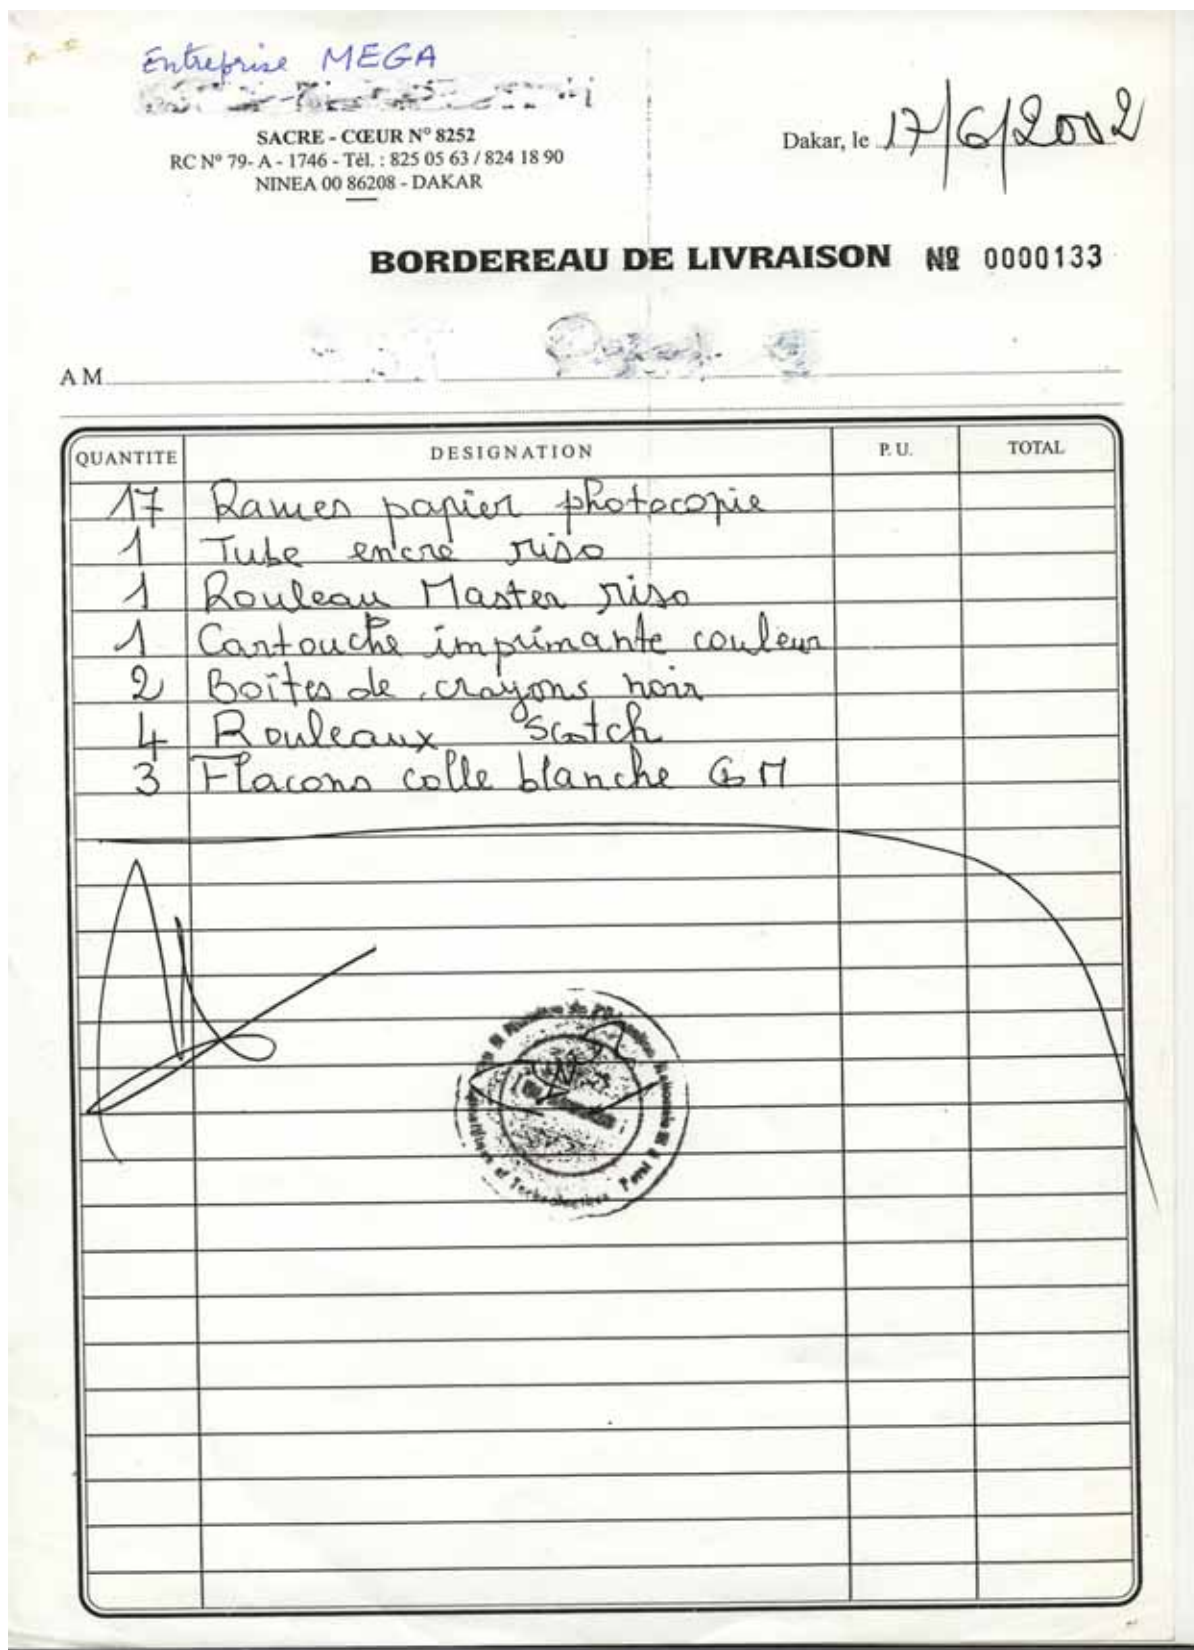 Entreprise MEGA
SACRE - CŒUR N° 8252
RC N° 79- A - 1746 - Tél. : 825 05 63 / 824 18 90
NINEA 00 86208 - DAKAR
Dakar, le 17/6/2002
BORDEREAU DE LIVRAISON № 0000133
A M
QUANTITE DESIGNATION P. U. TOTAL
17 Rames papier photocopie
1 Tube encre riso
1 Rouleau Master riso
1 Cartouche imprimante couleur
2 Boîtes de crayons noir
4 Rouleaux scotch
3 Flacons colle blanche GM